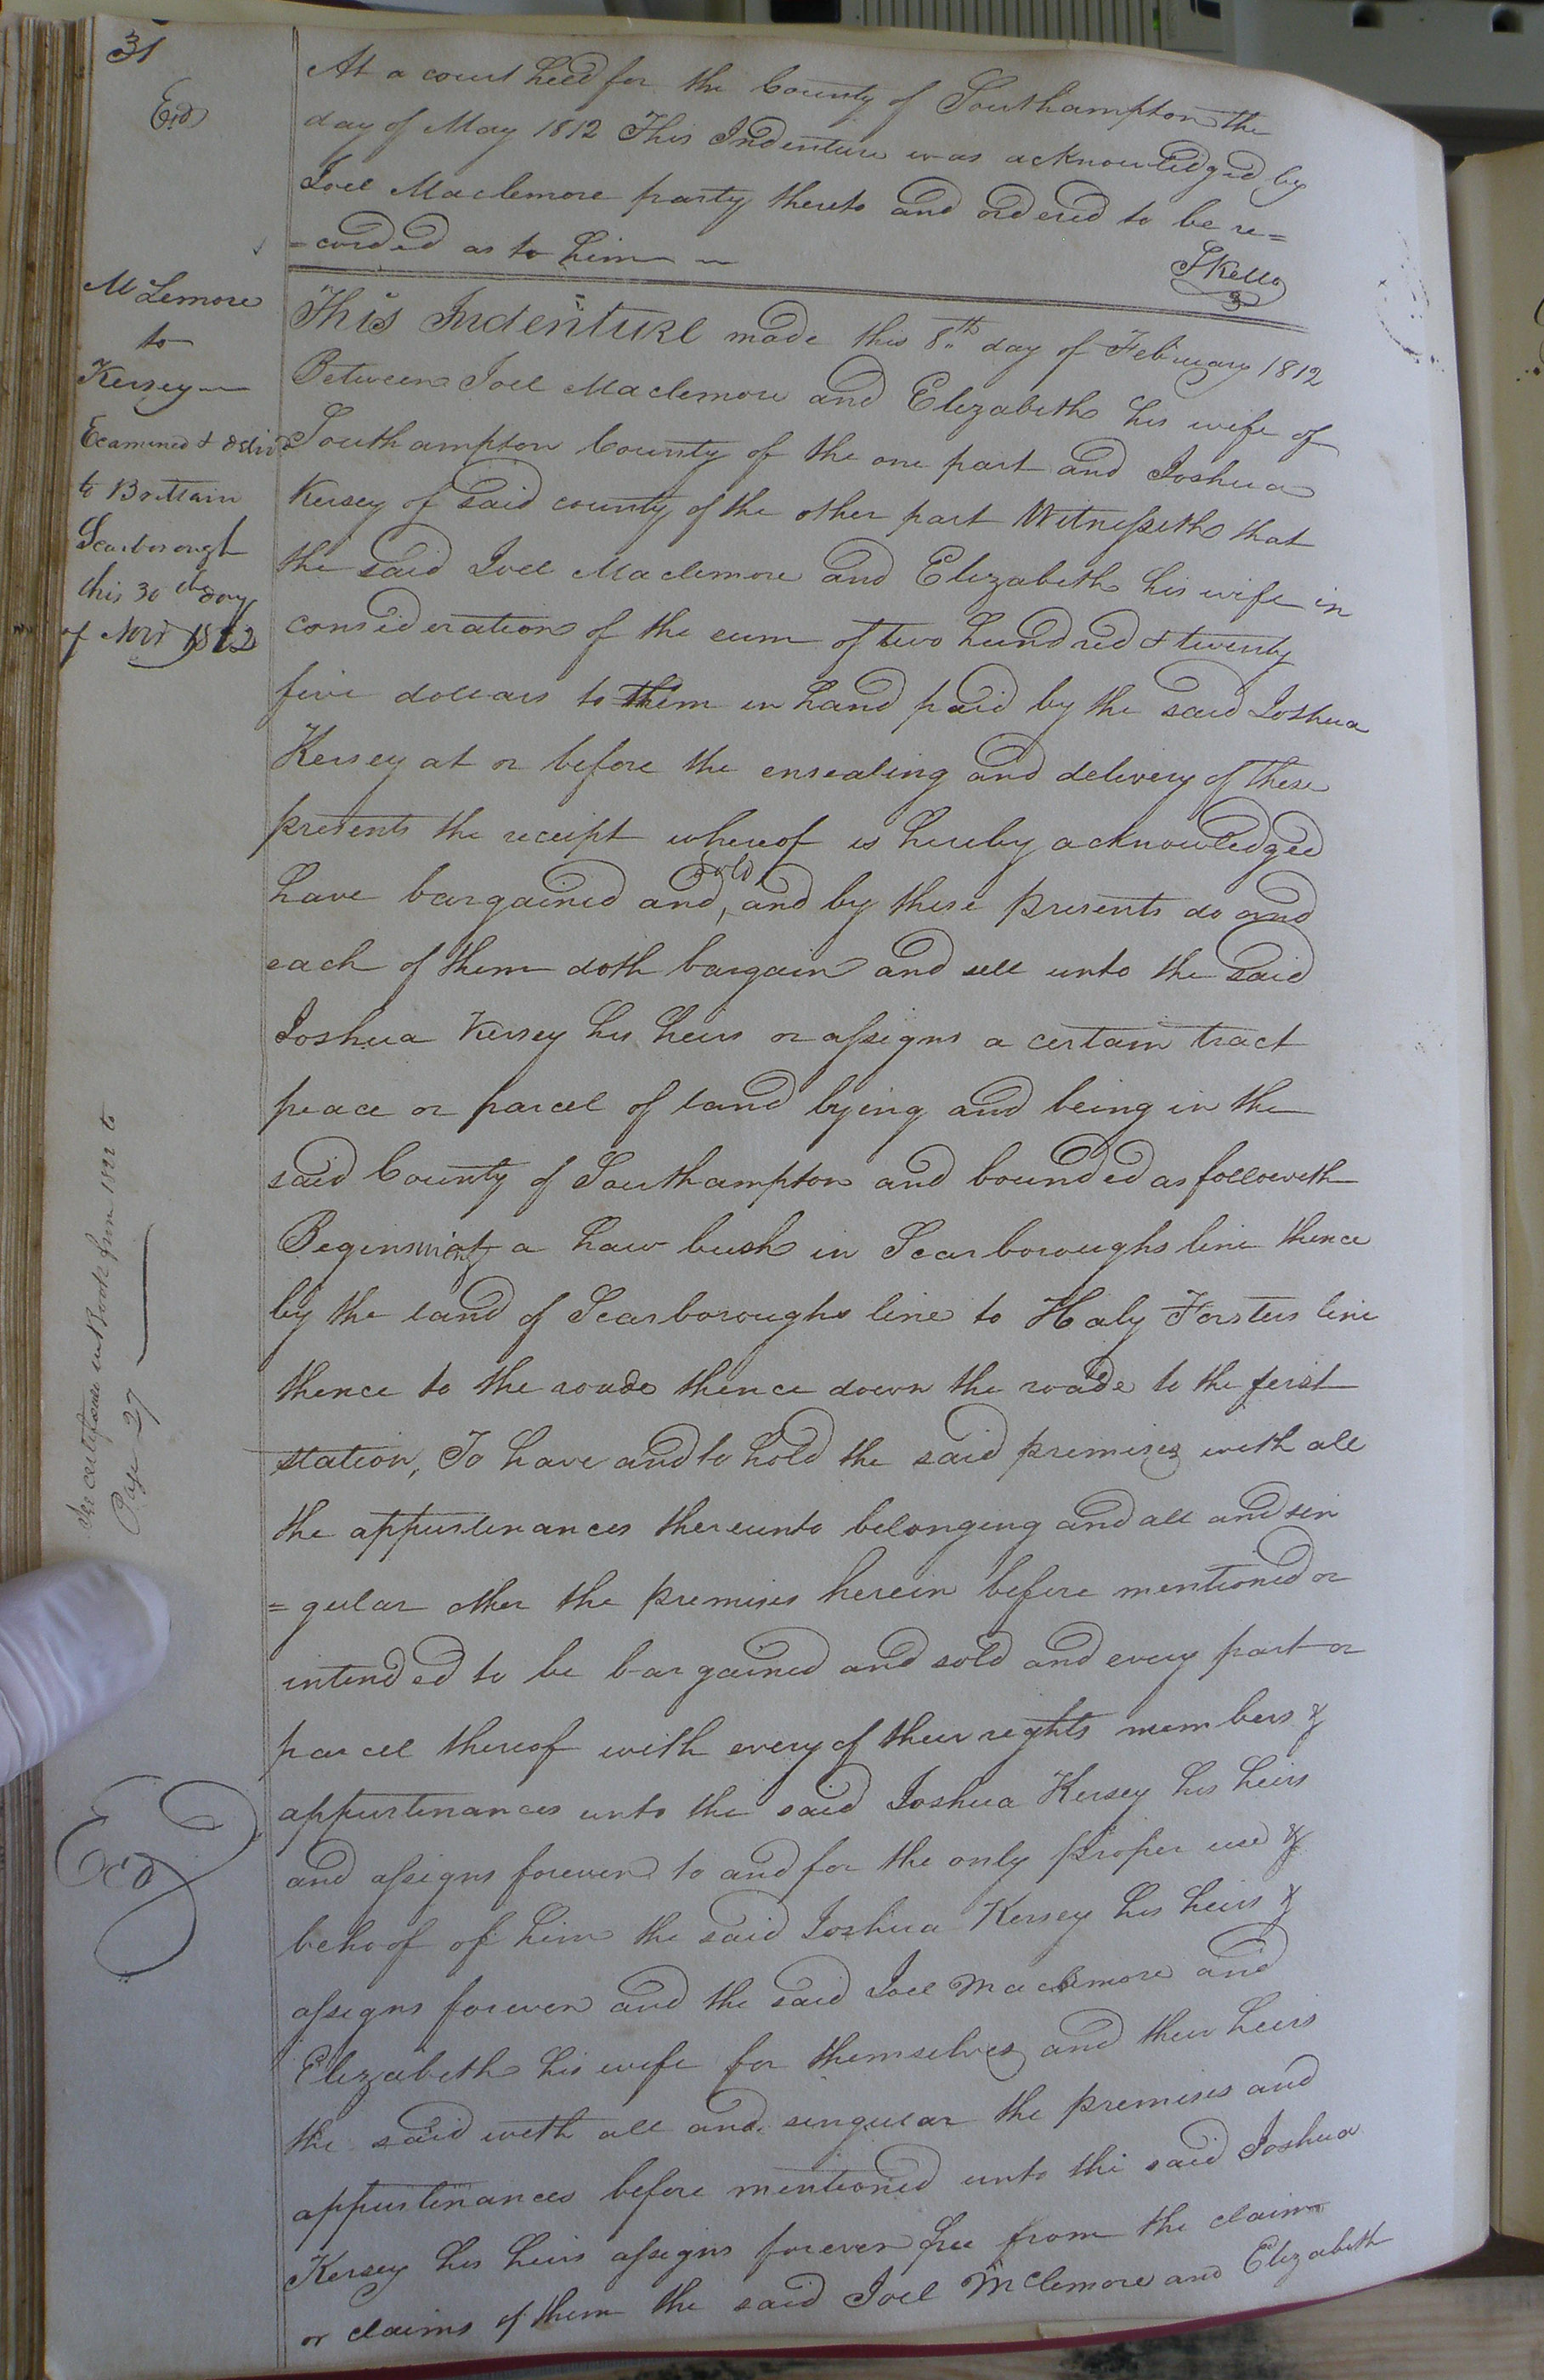 31
Exd
At a court held for the County of Southampton the
day of May 1812 This Indenture was acknowledged by
Joel Maclemore party thereto and ordered to be re=
=corded as to him
SKello
McLemore
to
Kersey
Examined & delivd
to Brittain
Scarborough
this 30th day
of Novr 1812
This Indenture made this 8th day of February 1812
Between Joel Maclemore and Elizabeth his wife of
Southampton County of the one part and Joshua
Kersey of said county of the other part Witnesseth that
the said Joel Maclemore and Elizabeth his wife in
consideration of the sum of two hundred & twenty
five dollars to them in hand paid by the said Joshua
Kersey at or before the ensealing and delivery of these
presents the receipt whereof is hereby acknowledged
have bargained and sold, and by these presents do and
each of them doth bargain and sell unto the said
Joshua Kersey his heirs or assigns a certain tract
peace or parcel of land lying and being in the
said County of Southampton and bounded as followeth
Begining at a haw bush in Scarboroughs line thence
by the land of Scarboroughs line to Haly Forsters line
thence to the roade thence down the roade to the ferst
station, To have and to hold the said premises with all
the appurtenances thereunto belonging and all and sin
=gular other the premises herein before mentioned or
intended to be bargained and sold and every part or
parcel thereof with every of their rights members &
appurtenances unto the said Joshua Kersey his heirs
and assigns forever to and for the only proper use &
behoof of him the said Joshua Kersey his heirs &
assigns forever and the said Joel Maclemore and
Elizabeth his wife for themselves and their heirs
the said with all and singular the premises and
appurtenances before mentioned unto the said Joshua
Kersey his heirs assigns forever free from the claim
or claims of them the said Joel Mclemore and Elizabeth
See certificate in Book from 1822 to
Page 27
Exd